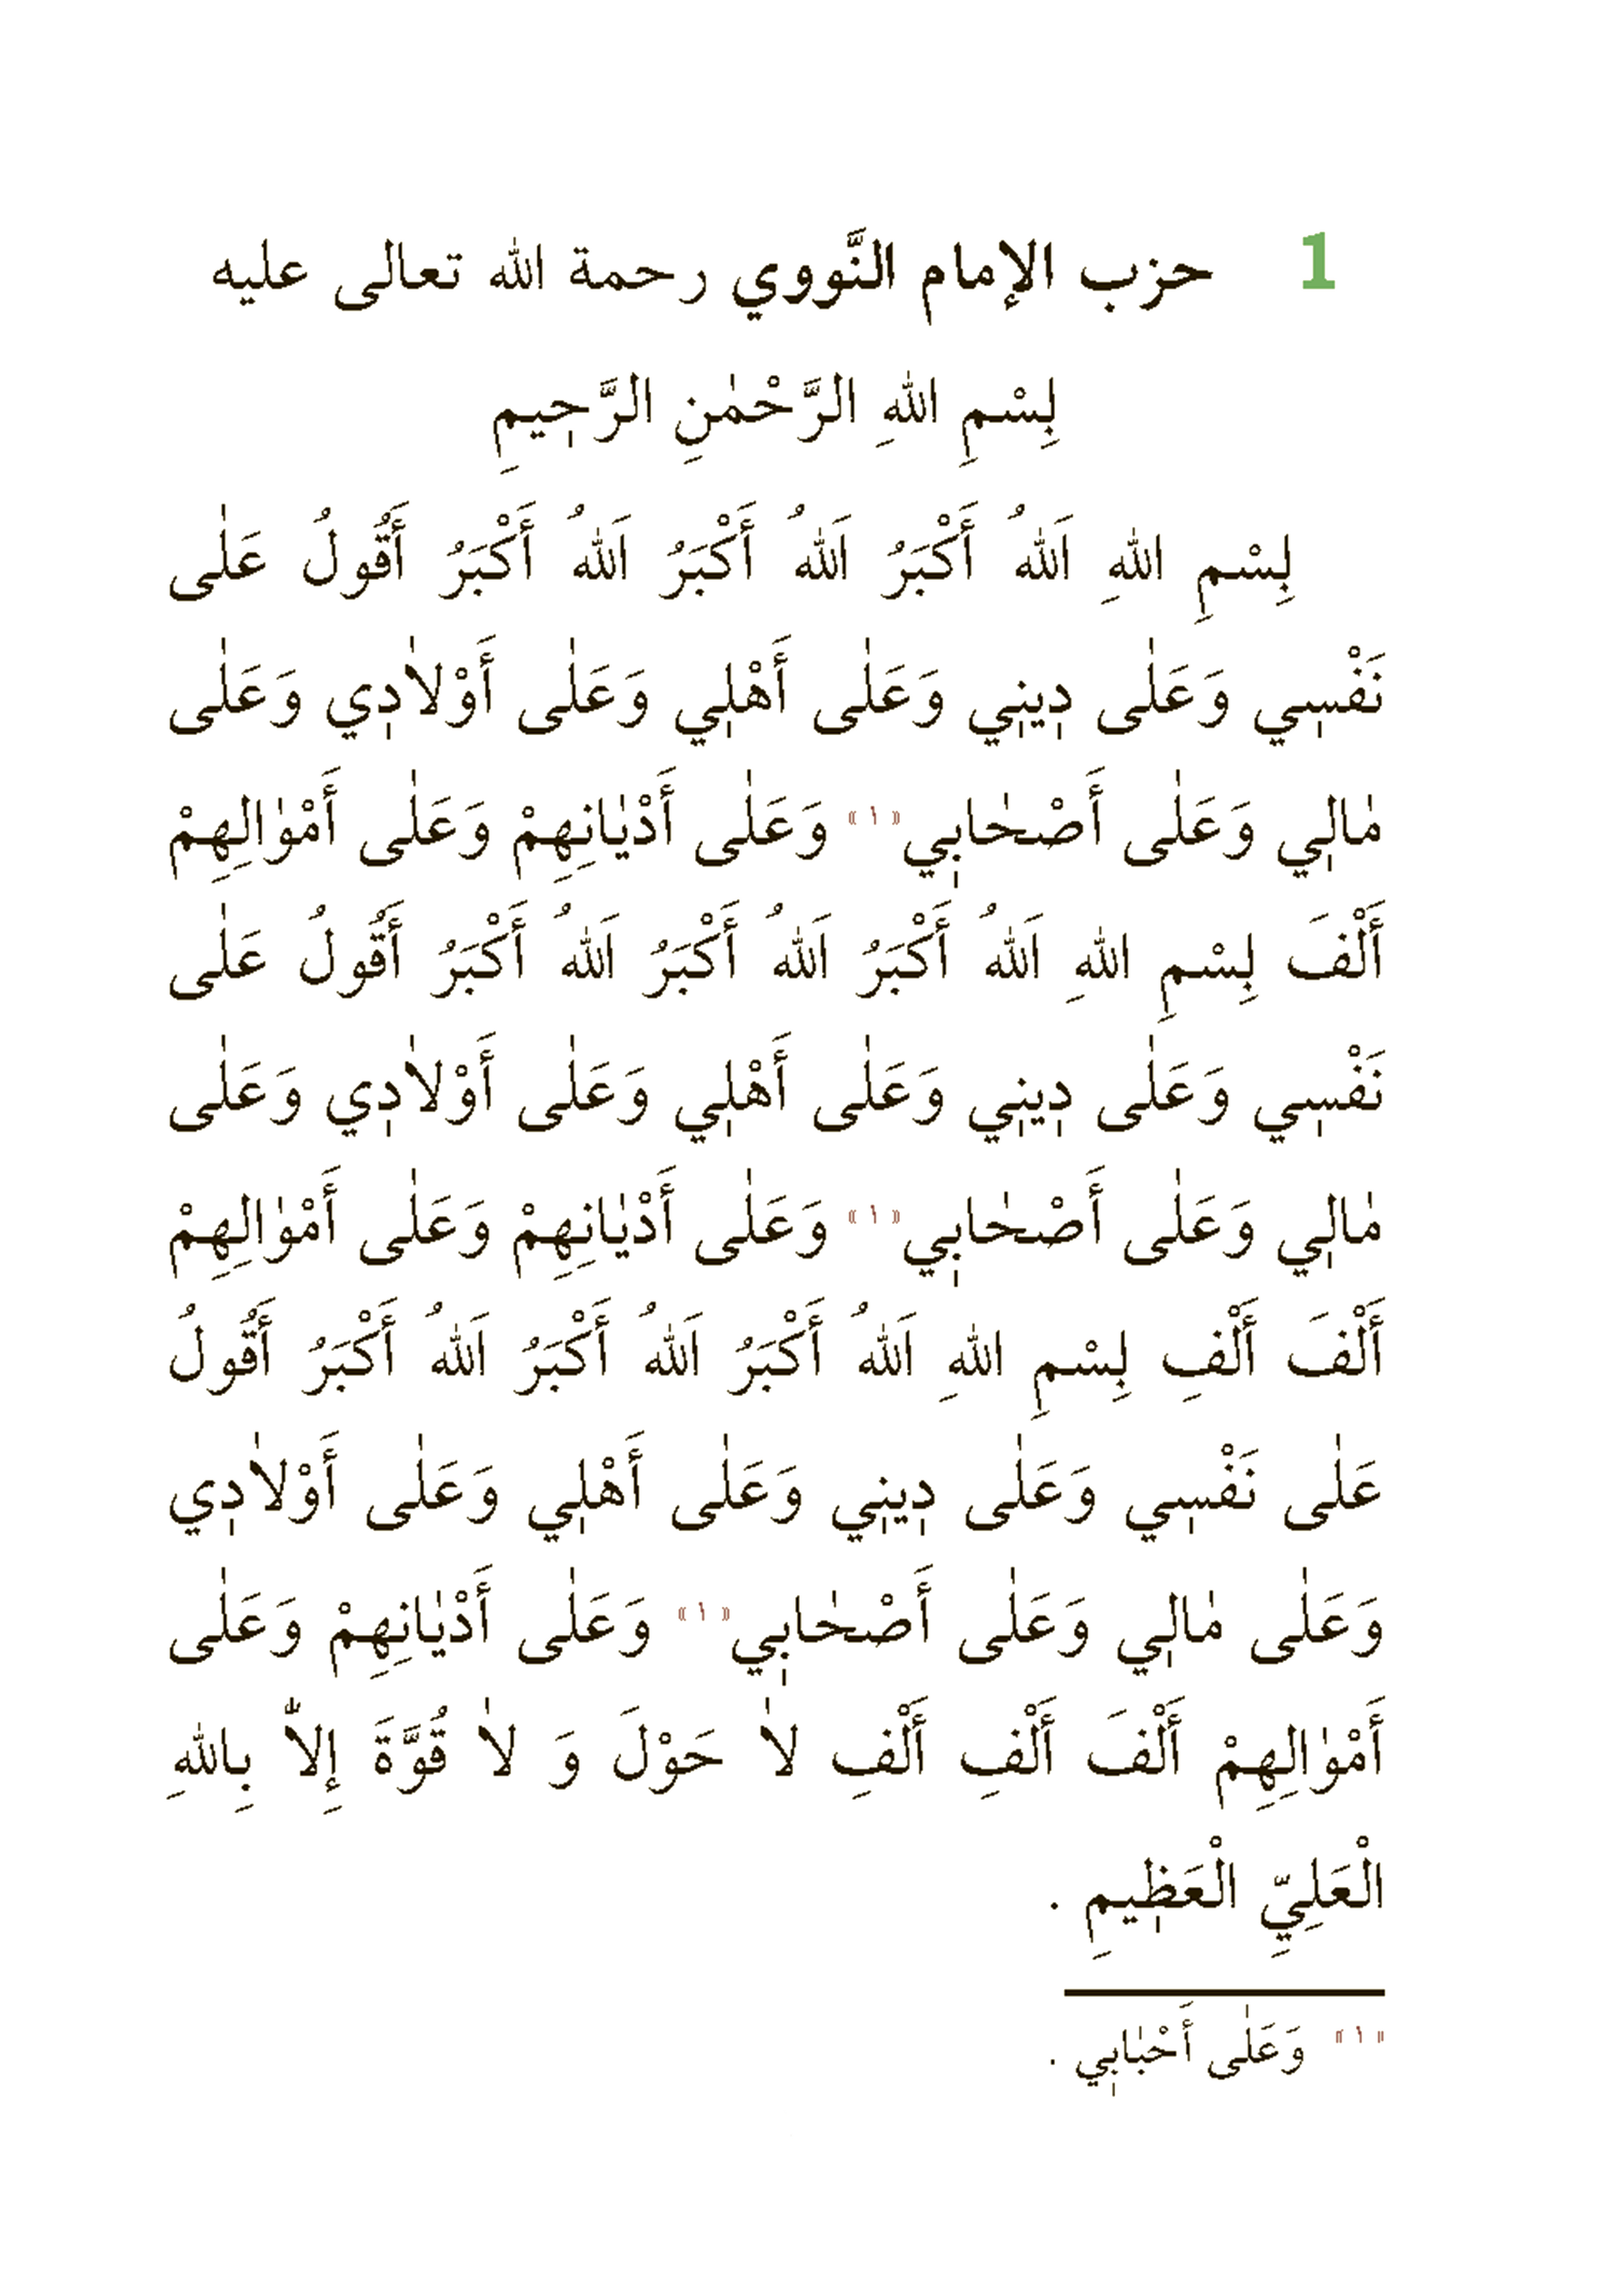 1 حزب الإمام النَّووي رحمة الله تعالى عليه
بِسْمِ اللهِ الرَّحْمٰنِ الرَّحٖيمِ
بِسْمِ اللهِ اَللهُ أَكْبَرُ اَللهُ أَكْبَرُ اَللهُ أَكْبَرُ أَقُولُ عَلٰى
نَفْسٖي وَعَلٰى دٖينٖي وَعَلٰى أَهْلٖي وَعَلٰى أَوْلاٰدٖي وَعَلٰى
مٰالٖي وَعَلٰى أَصْحٰابٖي «١» وَعَلٰى أَدْيٰانِهِمْ وَعَلٰى أَمْوٰالِهِمْ
أَلْفَ بِسْمِ اللهِ اَللهُ أَكْبَرُ اَللهُ أَكْبَرُ اَللهُ أَكْبَرُ أَقُولُ عَلٰى
نَفْسٖي وَعَلٰى دٖينٖي وَعَلٰى أَهْلٖي وَعَلٰى أَوْلاٰدٖي وَعَلٰى
مٰالٖي وَعَلٰى أَصْحٰابٖي «١» وَعَلٰى أَدْيٰانِهِمْ وَعَلٰى أَمْوٰالِهِمْ
أَلْفَ أَلْفِ بِسْمِ اللهِ اَللهُ أَكْبَرُ اَللهُ أَكْبَرُ اَللهُ أَكْبَرُ أَقُولُ
عَلٰى نَفْسٖي وَعَلٰى دٖينٖي وَعَلٰى أَهْلٖي وَعَلٰى أَوْلاٰدٖي
وَعَلٰى مٰالٖي وَعَلٰى أَصْحٰابٖي «١» وَعَلٰى أَدْيٰانِهِمْ وَعَلٰى
أَمْوٰالِهِمْ أَلْفَ أَلْفِ أَلْفِ لاٰ حَوْلَ وَ لاٰ قُوَّةَ إِلاّٰ بِاللهِ
الْعَلِيِّ الْعَظٖيمِ .
«١» وَعَلٰى أَحْبٰابٖي .